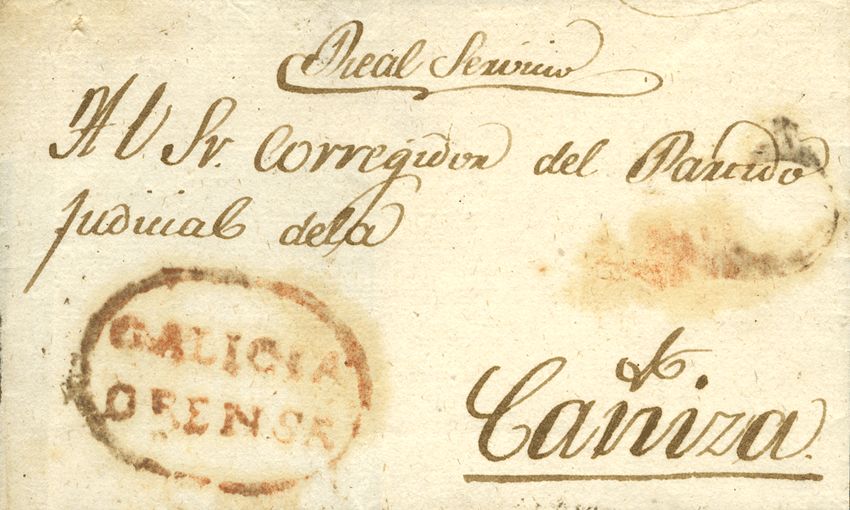 Real Servicio
Al Sr. Corregidor del Partido
Judicial dela
Cañiza.
GALICIA
ORENSE